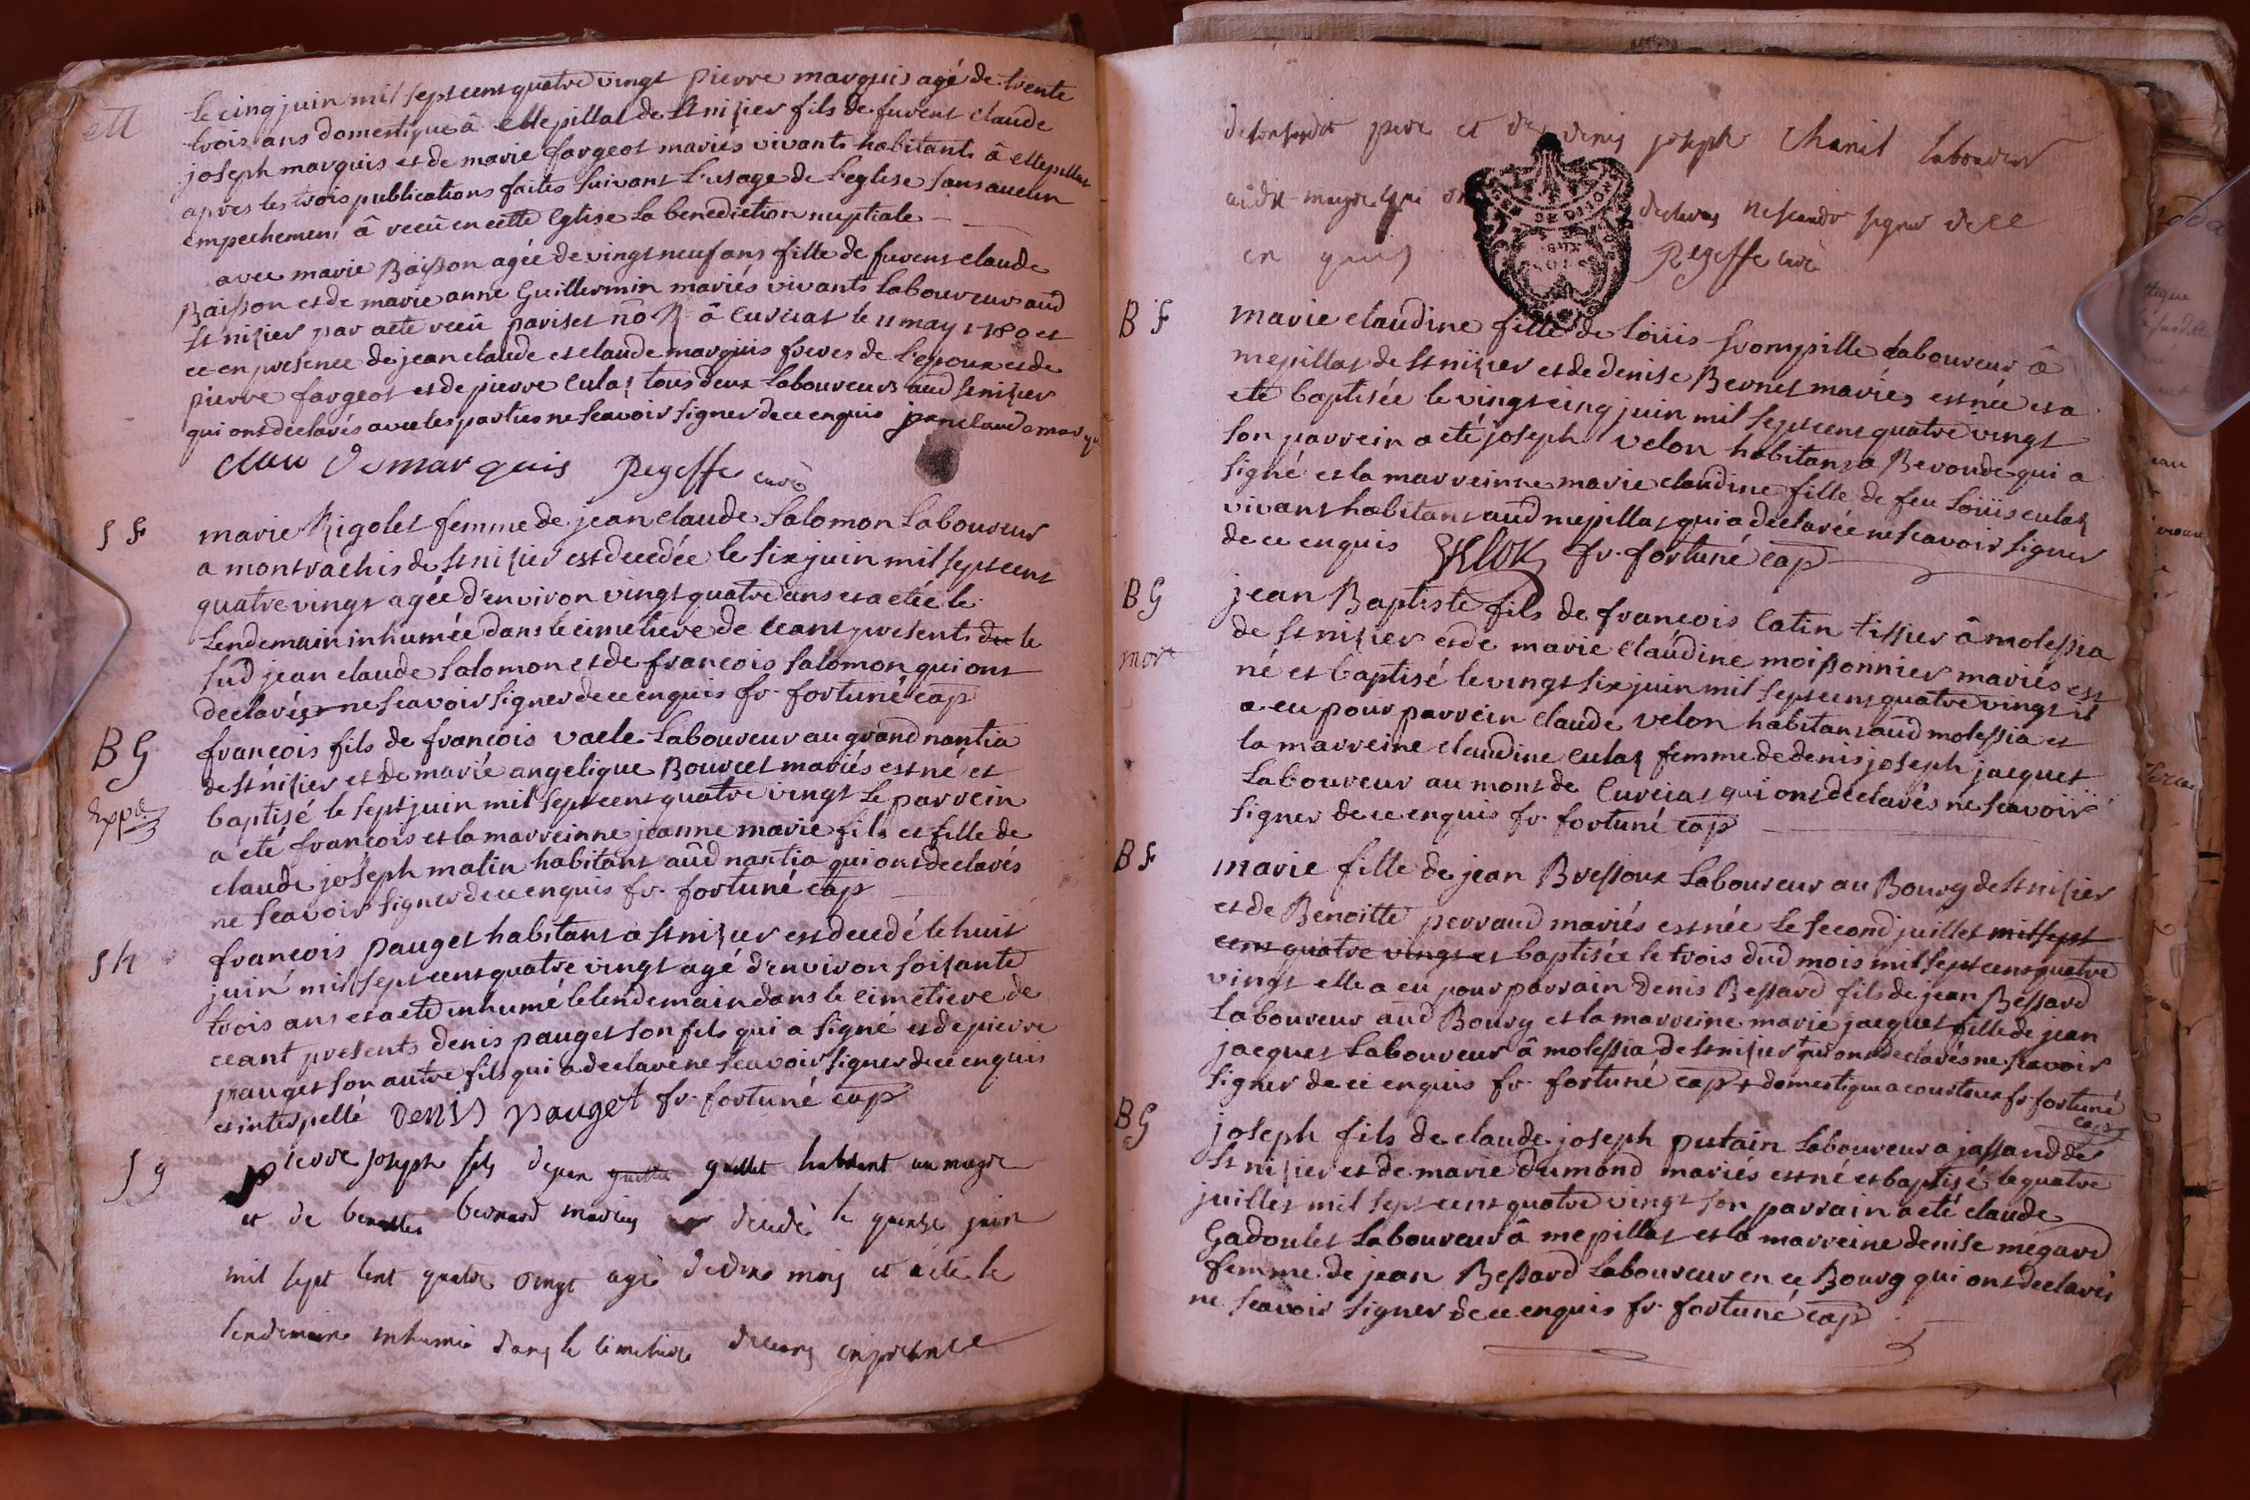 M
le cinq juin mil sept cent quatre vingt pierre marquis agé de trente
trois ans domestique â Mepillat de St nizier fils de furent claude
joseph marquis et de marie fargeot mariés vivants habitants â Mepillat
apres les trois publications faites suivant l'usage de l'eglise sans aucun
empechement â reçû en cette eglise la benediction nuptiale
avec marie Baisson agée de vingt neuf ans fille de furent claude
Baisson et de marie anne Guillermin mariés vivants laboureurs aud
St nizier par acte reçû pariset nõ R â Curciat le 11 may 1780 et
ce en presence de jean claude et claude marquis freres de l'epoux et de
pierre fargeot et de pierre Culaz tous deux laboureurs aud St nizier
qui ont declarés avec les parties ne scavoir signer de ce enquis jean claude marqu
claudemarquis Pegeffe curé
S F
marie Rigolet femme de jean claude Salomon laboureur
a montrachis de St nizier est decedée le six juin mil sept cent
quatre vingt agée d'environ vingt quatre ans et a etée le
lendemain inhumée dans le cimetiere de ceant presents du le
sud jean claude Salomon et de françois Salomon qui ont
declarés ne scavoir signer de ce enquis fr. fortuné cap
B G
Expd.
françois fils de françois vaele laboureur au grand nantia
de St nizier et de marie angelique Bourcet mariés est né et
baptisé le sept juin mil sept cent quatre vingt le parrein
a eté françois et la marreinne jeanne marie fils et fille de
claude joseph malin habitant aûd nantia qui ont declarés
ne scavoir signer de ce enquis fr. fortuné cap
S h
françois pauget habitant a St nizier est decedé le huit
juin mil sept cent quatre vingt agé d'environ soixante
trois ans et a eté inhumé le lendemain dans le cimetiere de
ceant presents denis pauget son fils qui a signé et de pierre
pauget son autre fils qui a declaré ne scavoir signer de ce enquis
et interpellé Denis pauget fr. fortuné cap
S g
pierre joseph fils de jean guillet habitant au
et de benoitte bernard mariés decedé le quinze juin
mil sept cent quatre vingt agé de deux mois et a été le
lendemain inhumé dans le cimetiere de ceans en presence
de son sudit pere et de denis joseph Chanel laboureur
qui ont declarés ne scavoir signer de ce
enquis Pegeffe curé
B F
marie claudine fille de loüis frompille laboureur â
mepillat de St nizier et de denise Bernet mariés est née et a
eté baptisée le vingt cinq juin mil sept cent quatre vingt
son parrein a eté joseph velon habitant a Beroude qui a
signé et la marreinne marie claudine fille de feu loüis culaz
vivant habitant aud mepillat qui a declarée ne scavoir signer
de ce enquis velon fr. fortuné cap
B G
mort
jean Baptiste fils de françois Catin tissier â molessia
de St nizier et de marie claudine moissonnier mariés est
né et baptisé le vingt six juin mil sept cent quatre vingt il
a eu pour parrein claude velon habitant aud molessia et
la marreine claudine culaz femme de denis joseph jacquet
laboureur au mont de Curciat qui ont declarés ne scavoir
signer de ce enquis fr. fortuné cap
B F
marie fille de jean Bressoux laboureur au Bourg de St nizier
et de Benoitte perraud mariés est née le second juillet mil sept
cent quatre vingt et baptisée le trois dud mois mil sept cent quatre
vingt elle a eu pour parrain denis Bessard fils de jean Bessard
laboureur aud Bourg et la marreine marie jacquet fille de jean
jacquet laboureur â molessia de St nizier + qui ont declarés ne scavoir
signer de ce enquis fr. fortuné cap + domestique a courtoux fr. fortuné
cap
B G
joseph fils de claude joseph putain laboureur a jassand de
St nizier et de marie dumond mariés est né et baptisé le quatre
juillet mil sept cent quatre vingt son parrain a eté claude
Gadoulet laboureur â mepillat et la marreine denise mégard
femme de jean Bessard laboureur en ce Bourg qui ont declarés
ne scavoir signer de ce enquis fr. fortuné cap